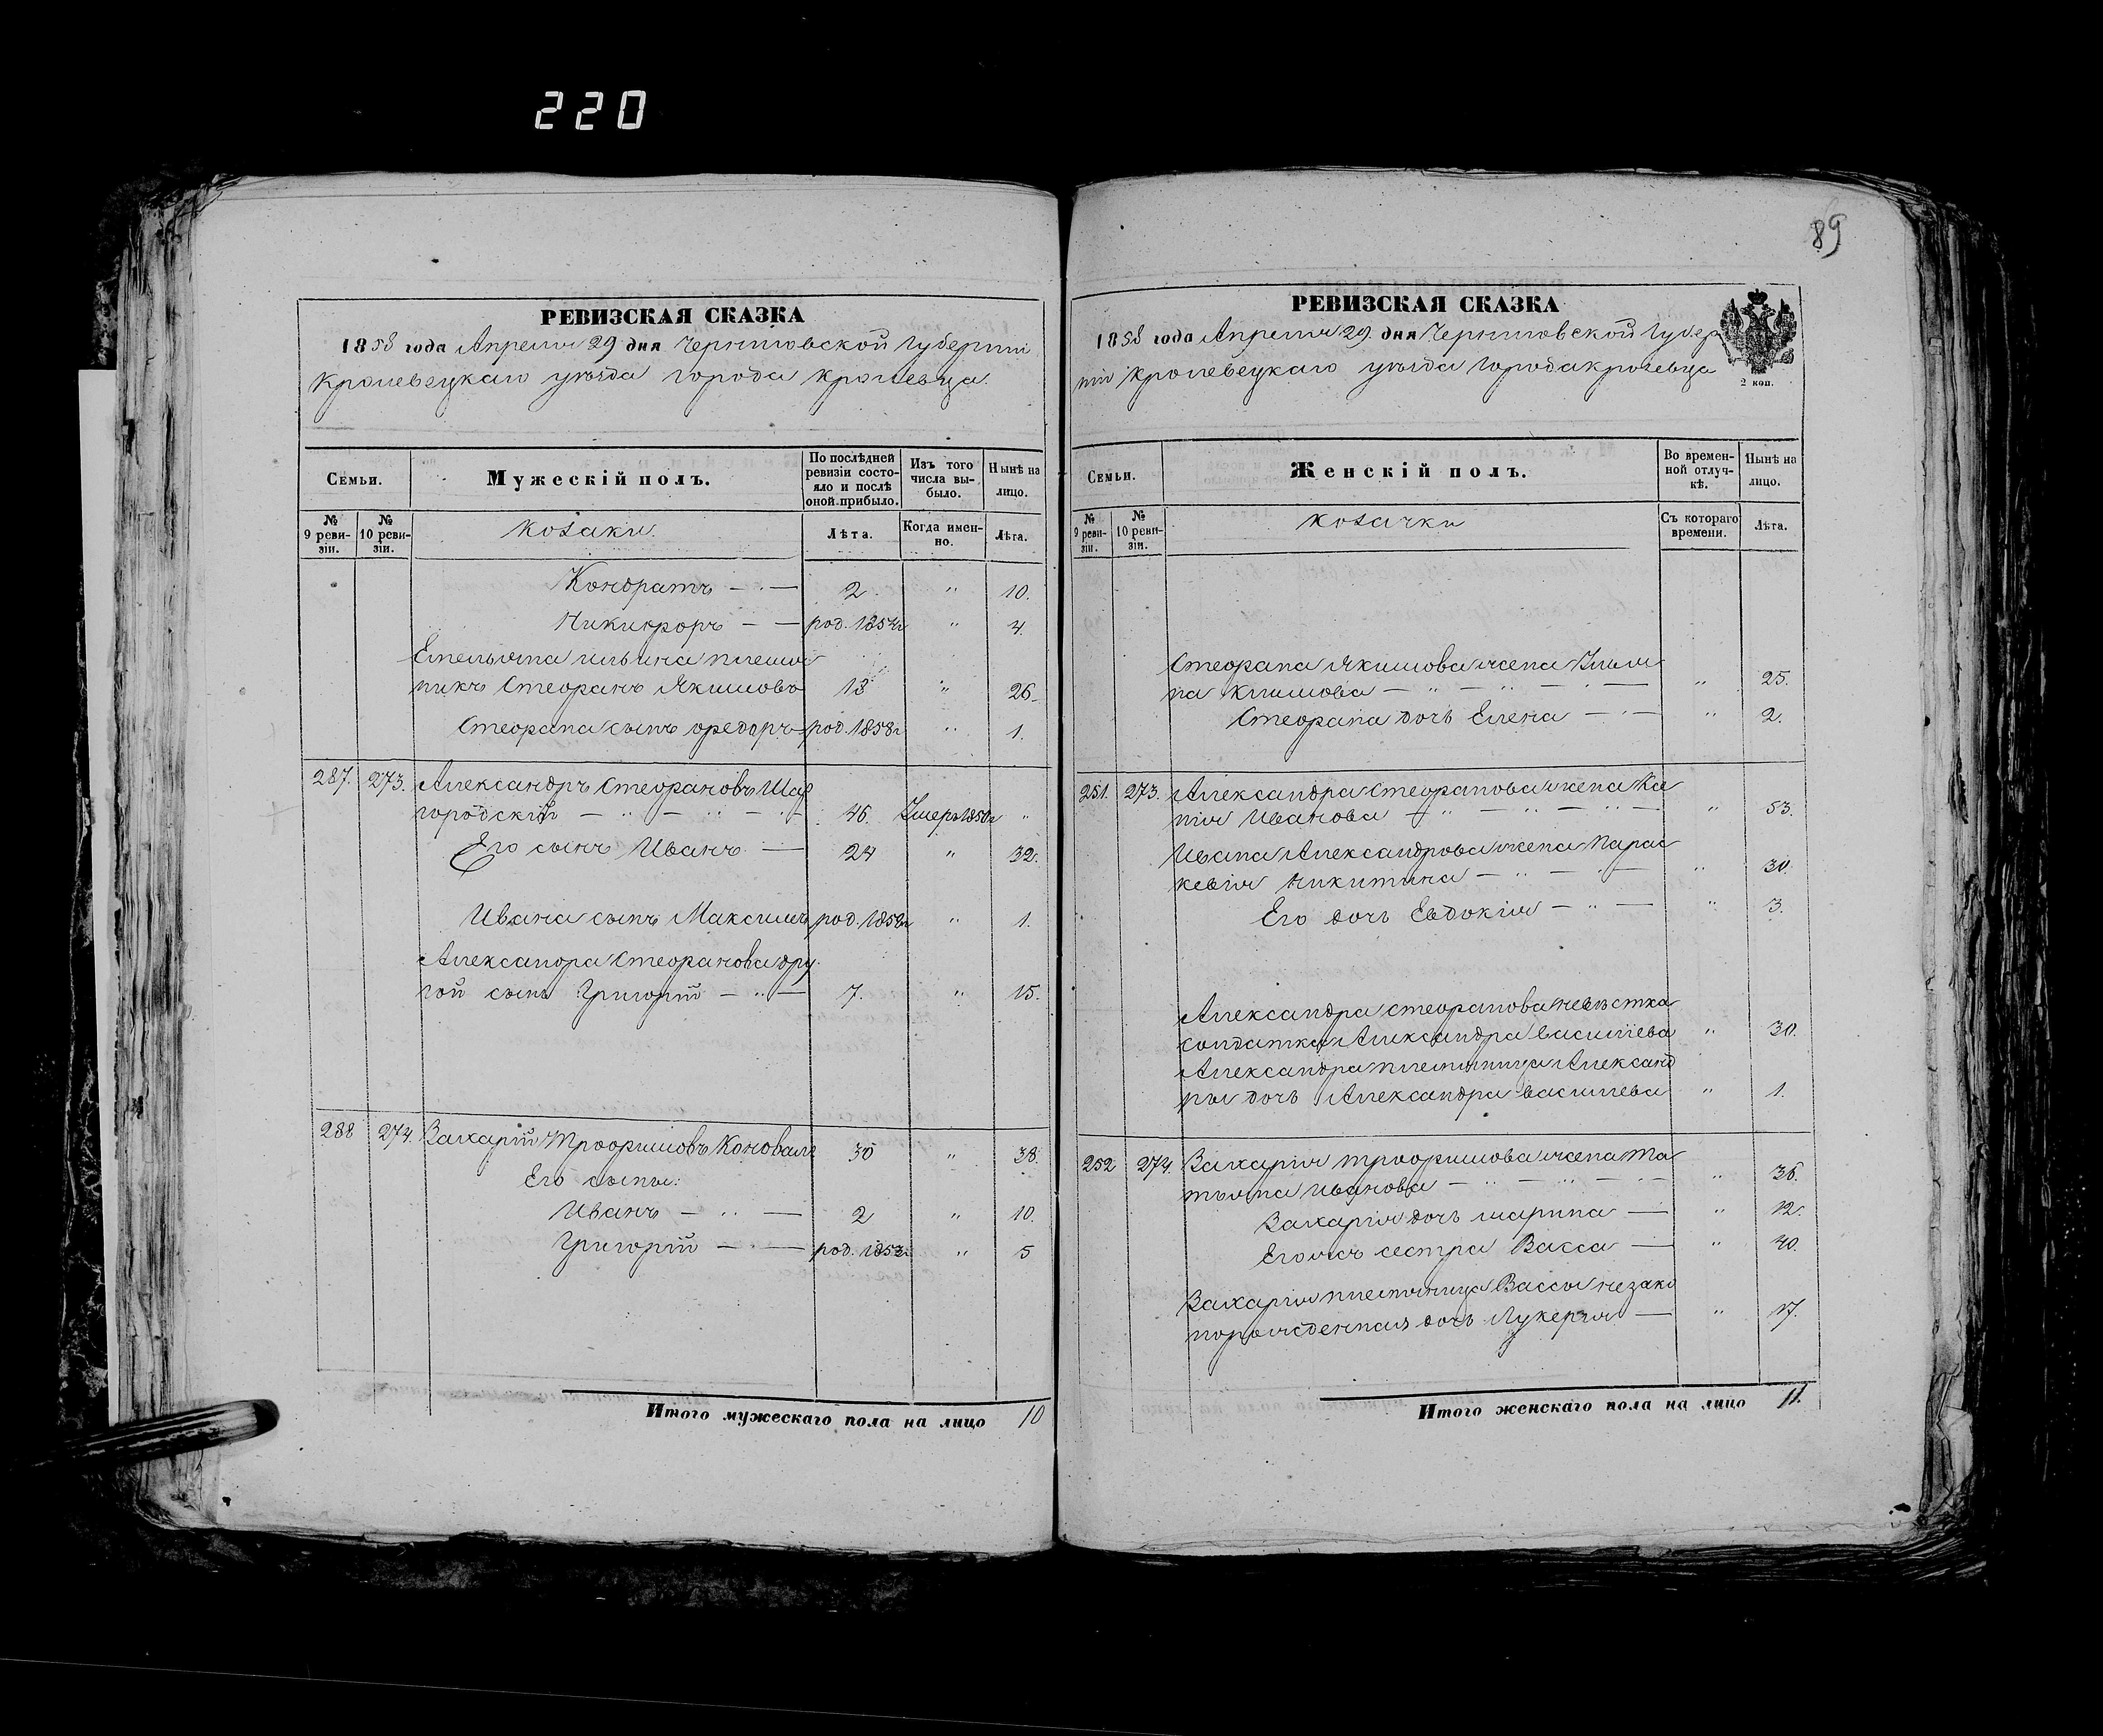 220
89
РЕВИЗСКАЯ СКАЗКА
1858 года Апреля 29 дня Черниговской Губернии
Кролевецкаго уезда города Кролевца.
Семьи.
Мужескій полъ.
По послѣдней ревизіи состояло и послѣ оной прибыло.
Изъ того числа выбыло.
Нынѣ на лицо.
№ 9 ревизіи.
№ 10 ревизіи.
козаки.
Лѣта.
Когда именно.
Лѣта.
Кондратъ — 2 " 10.
Никифоръ — род. 1854г " 4.
Емельяна Ильина племян
никъ Стефанъ Якимовъ 18 " 26.
Стефана сынъ Федоръ род. 1858г " 1.
287. 273. Александръ Стефановъ
городскій — 46. Умеръ 1850г "
Его сынъ Иванъ — 24 " 32.
Ивана сынъ Максимъ род. 1858г " 1.
Александра Стефанова дру
гой сынъ Григорій — 7. " 15.
288 274. Захарій Трофимовъ Коновал 30 " 38.
Его сыны:
Иванъ — 2 " 10.
Григорій — род. 1853 " 5
Итого мужескаго пола на лицо 10
РЕВИЗСКАЯ СКАЗКА
1858 года Апреля 29. дня Черниговской Губер
нии Кролевецкаго уезда города Кролевца
2 коп.
Семьи.
Женскій полъ.
Во временной отлучкѣ.
Нынѣ на лицо.
№ 9 ревизіи.
№ 10 ревизіи.
козачки
Съ котораго времени.
Лѣта.
Стефана Якимова жена Улья
на Климова — " 25.
Стефана дочь Елена — " 2.
251. 273. Александра Стефанова жена Ка
Иванова — " 53.
Ивана Александрова жена Парас
кевія Никитина — " 30.
Его дочь Евдокія — " 3.
Александра Стефанова невѣстка
солдатка Александра Васильева " 30.
Александра племянница Александ
ры дочь Александра Васильева " 1.
252 274. Захарія Трофимова жена Та
тьяна Иванова — " 36.
Захарія дочь Марина — " 12.
Его жъ сестра Васса — " 40.
Захарія племянница Вассы незако
норожденная дочь Лукерья — " 17.
Итого женскаго пола на лицо 11.